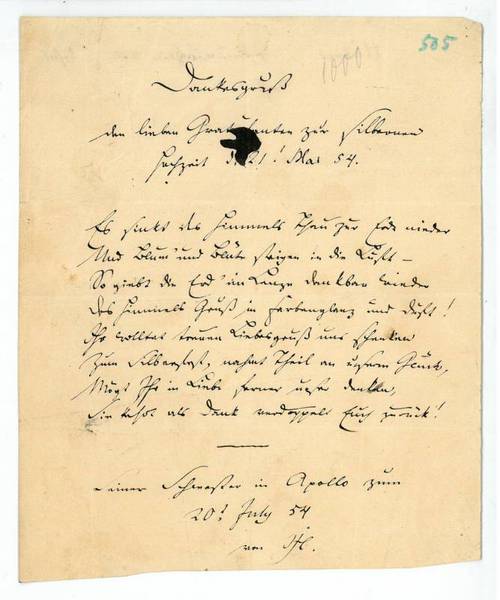 505
1000
Dankesgruß
den lieben Gratulanten zur silbernen
Hochzeit d. 21! Mai 54.
Es sinkt des Himmels Thau zur Erde nieder
Und Blum' und Blüte steigen in die Luft –
So giebt die Erd' im Lenze dankbar wieder
Des Himmels Gruß in Farbenglanz und Duft!
Ihr wolltet treuen Liebesgruß uns schenken
Zum Silberfest, nahmt Theil an unserm Glück,
Mögt Ihr in Liebe ferner unser denken,
Sie kehrt als Dank verdoppelt Euch zurück!
einer Schwester in Apollo zum
20! July 54
von